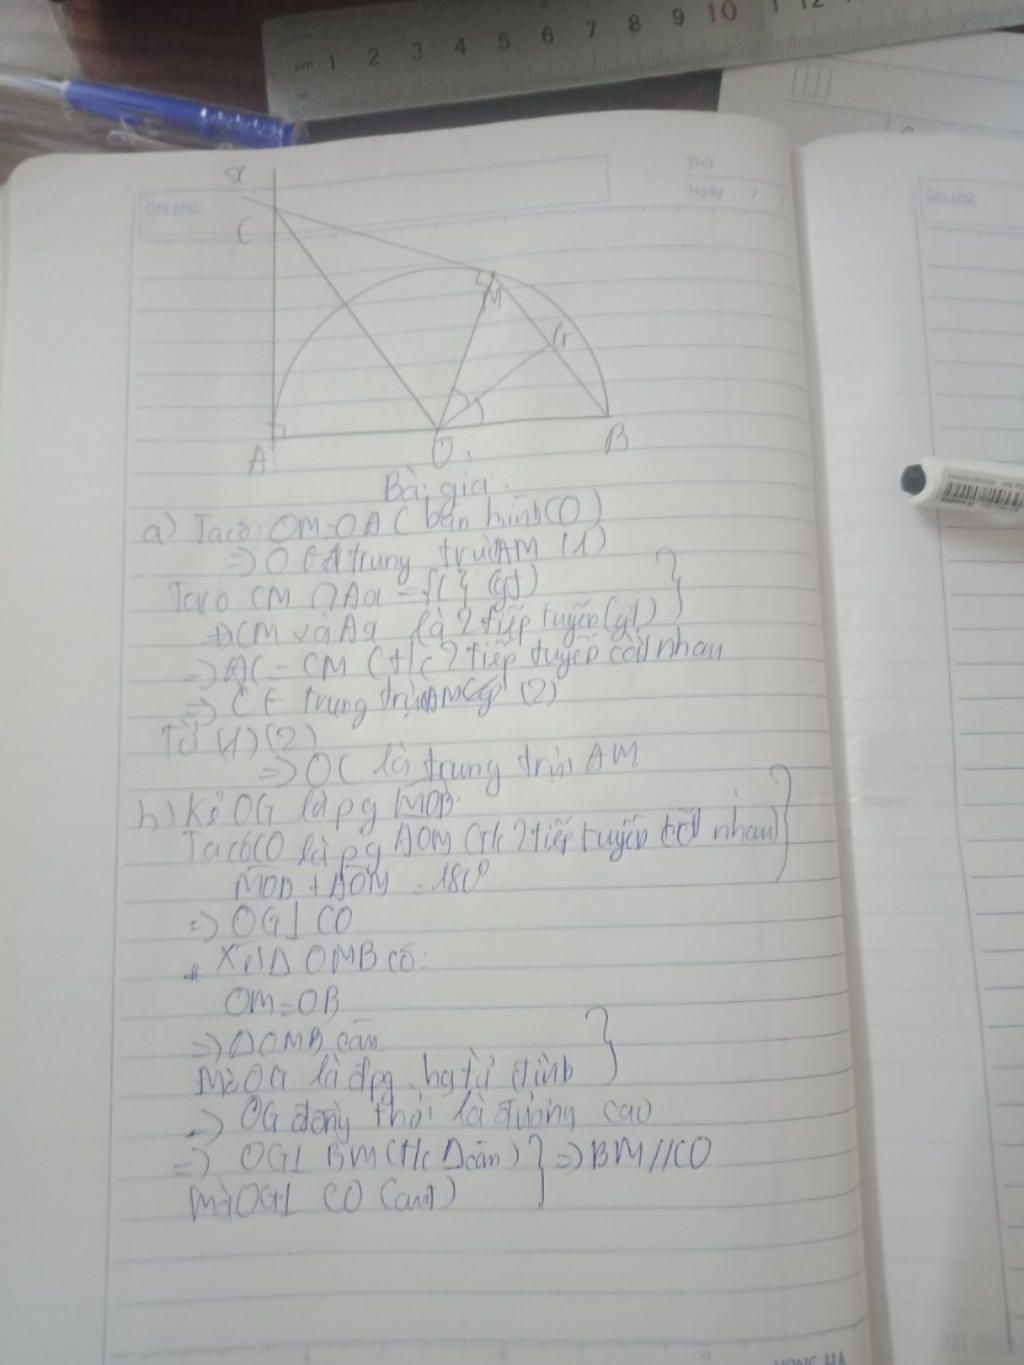 cm 1 2 3 4 5 6 7 8 9 10 1 12
Thứ
Ngày / /
Ghi chú:
Ghi chú
x
C
M
G
A
O
B
Bài giải
a) Ta có: OM=OA ( bán kính(O)
=> O ∈ đ trung trực AM (1)
Ta có CM ∩ Ax = {C} (gt)
=> CM và Ax là 2 tiếp tuyến (gt)
=> AC = CM (t/c 2 tiếp tuyến cắt nhau
=> C ∈ trung trực AM (2)
Từ (1)(2)
=> OC là trung trực AM
b) Kẻ OG là pg MOB.
Ta có CO là pg AOM (t/c 2 tiếp tuyến cắt nhau)
MOB + AOM = 180°
=> OG⊥CO
* Xét Δ OMB có:
OM=OB
=> ΔOMB cân
Mà OG là đpg hạ từ đỉnh
=> OG đồng thời là đường cao
=> OG⊥ BM (t/c Δcân) } => BM//CO
Mà OG⊥ CO (cmt)
HONG HA